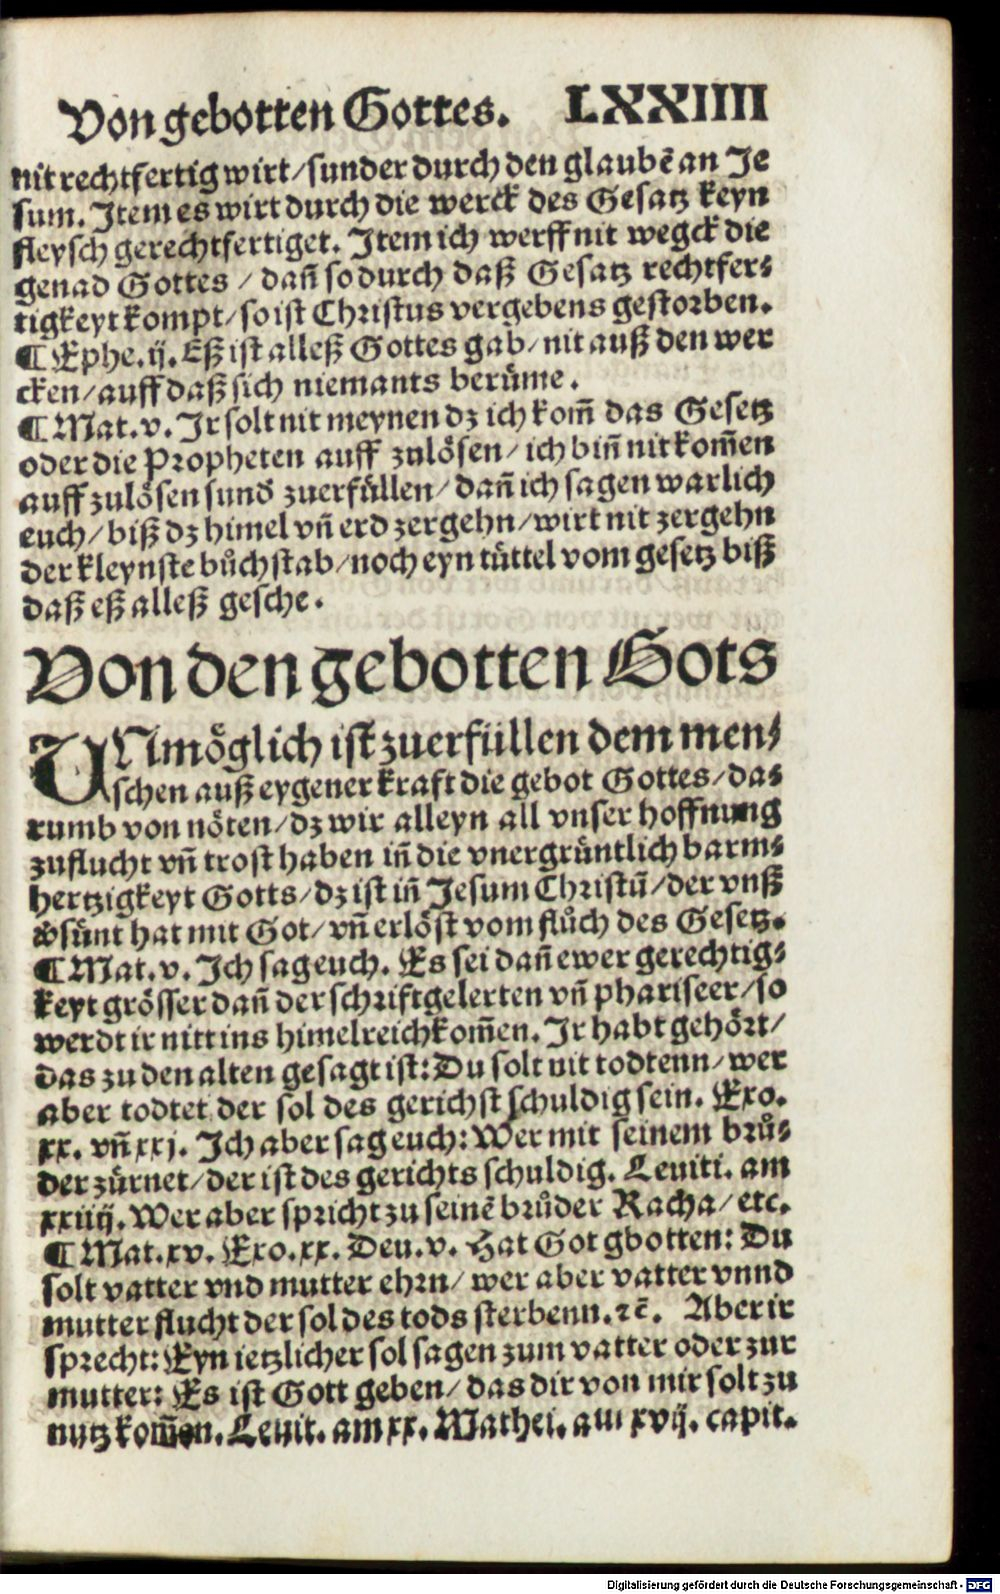 Von gebotten Gottes. LXXIIII
nit rechtfertig wirt/sunder durch den glaubē an Je
sum. Item es wirt durch die werck des Gesatz keyn
fleysch gerechtfertiget. Item ich werff nit wegck die
genad Gottes / dañ so durch daß Gesatz rechtfer⸗
tigkeyt kompt/so ist Christus vergebens gestorben.
¶ Ephe.ij. Eß ist alleß Gottes gab/nit auß den wer
cken/auff daß sich niemants berüme.
¶ Mat.v. Ir solt nit meynen dz ich kom̃ das Gesetz
oder die Propheten auff zulösen/ich biñ nit kom̃en
auff zulösen sunď zuerfüllen/dañ ich sagen warlich
euch/biß dz himel vñ erd zergehn/wirt nit zergehn
der kleynste bůchstab/noch eyn tüttel vom gesetz biß
daß eß alleß gesche.
Von den gebotten Gots
UNmöglich ist zuerfüllen dem men⸗
schen auß eygener kraft die gebot Gottes/da⸗
rumb von nöten/dz wir alleyn all vnser hoffnung
zuflucht vñ trost haben iñ die vnergrüntlich barm⸗
hertzigkeyt Gotts/dz ist iñ Jesum Christū/der vnß
v̉sünt hat mit Got/vñ erlöst vom flůch des Gesetz.
¶ Mat.v. Ich sag euch. Es sei dañ ewer gerechtig⸗
keyt grösser dañ der schriftgelerten vñ phariseer/so
werdt ir nitt ins himelreich kom̃en. Ir habt gehört/
das zu den alten gesagt ist: Du solt nit todtenn/wer
aber todtet der sol des gerichst schuldig sein. Exo.
xx. vñ xxj. Ich aber sag euch: Wer mit seinem brů⸗
der zürnet/der ist des gerichts schuldig. Leuiti. am
xxiiij. Wer aber spricht zu seinē brůder Racha/etc.
¶ Mat.xv. Exo.xx. Deu.v. Hat Got gbotten: Du
solt vatter vnd mutter ehrn/wer aber vatter vnnd
mutter flucht der sol des tods sterbenn.⁊č. Aber ir
sprecht: Eyn ietzlicher sol sagen zum vatter oder zur
mutter: Es ist Gott geben/das dir von mir solt zu
nutz kom̃en. Leuit. am xx. Mathei. am xvij. capit.
Digitalisierung gefördert durch die Deutsche Forschungsgemeinschaft - DFG